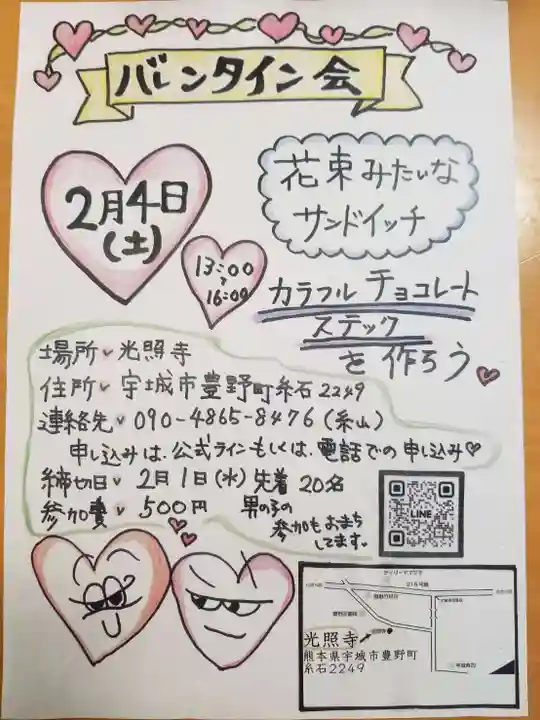 バレンタイン会
2月4日
(土)
13:00
〜
16:00
花束みたいな
サンドイッチ
カラフルチョコレート
ステック
を作ろう
場所 光照寺
住所 宇城市豊野町糸石2249
連絡先 090-4865-8476(糸山)
申し込みは、公式ラインもしくは、電話での申し込み
締切日 2月1日(水)先着20名
参加費 500円
男の子の
参加もおまち
してます。
LINE
光照寺
熊本県宇城市豊野町
糸石2249